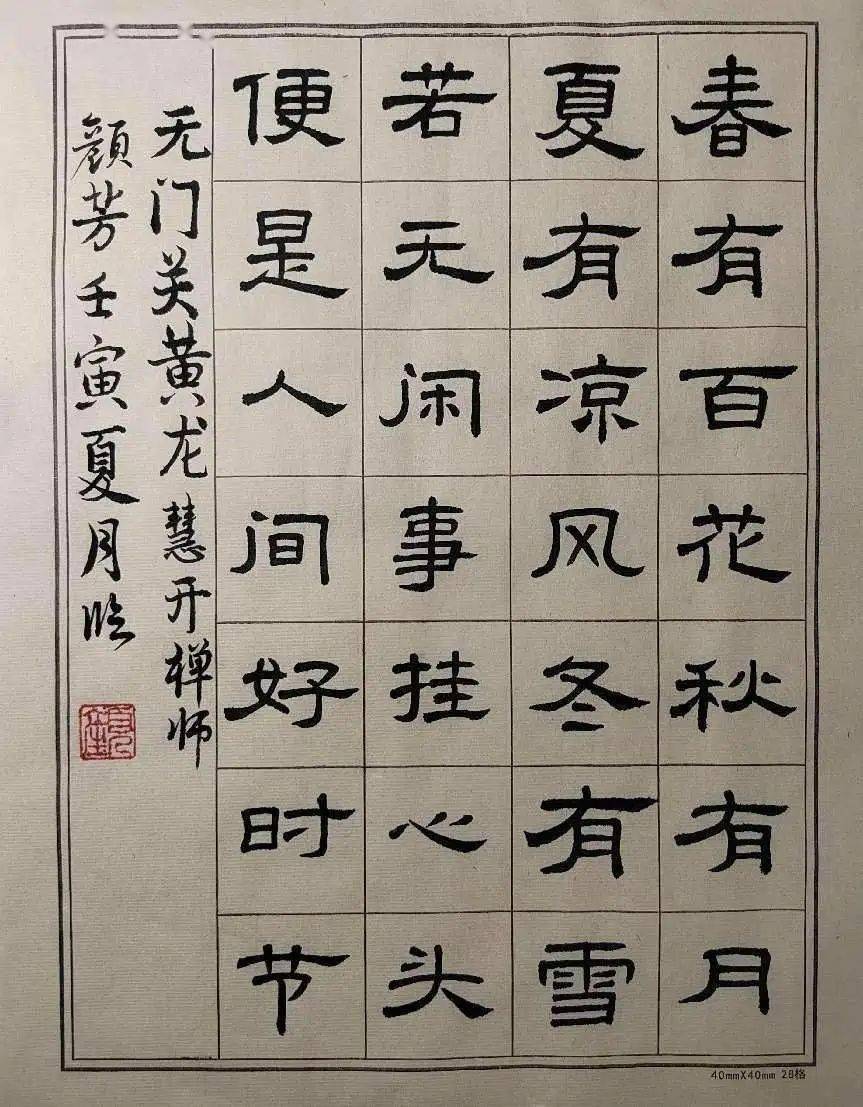 春有百花秋有月
夏有凉风冬有雪
若无闲事挂心头
便是人间好时节
无门关黄龙慧开禅师
颜芳壬寅夏月临
40mmX40mm 28格